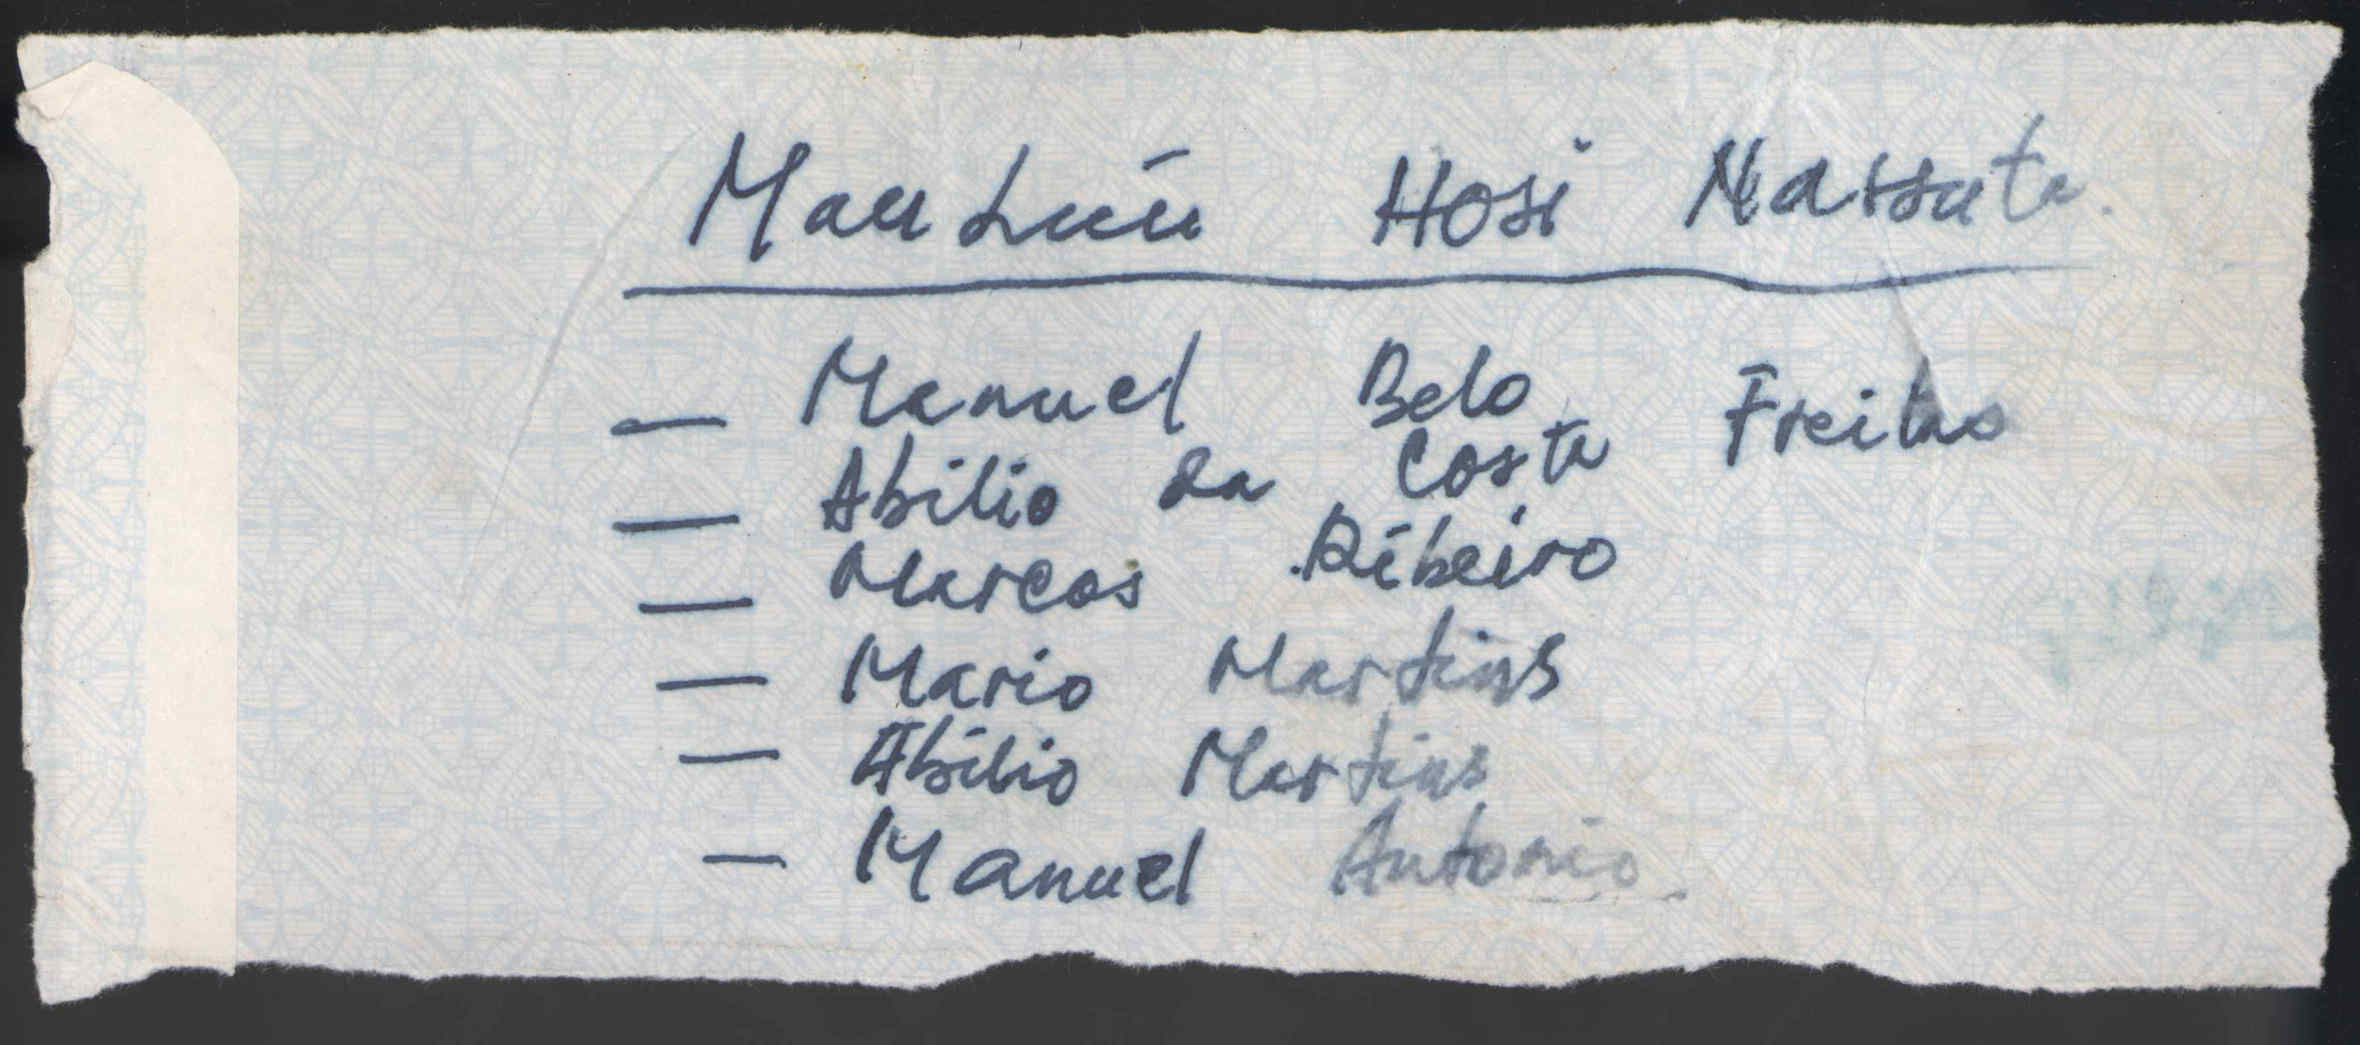 Mau Luu Hosi Nassuta.
— Manuel Belo
— Abilio da Costa Freitas
— Marcos Ribeiro
— Mario Martins
— Abilio Martins
— Manuel Antonio